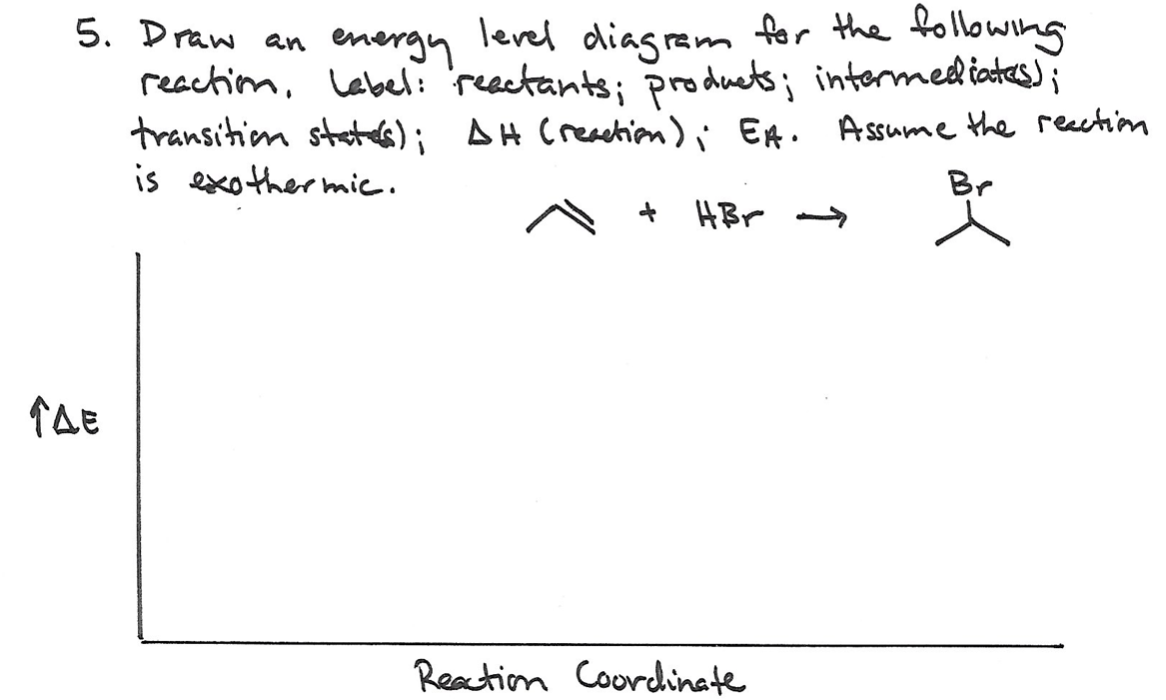 5. Draw an energy level diagram for the following
reaction. Label: reactants; products; intermediate(s);
transition state(s); ΔH (reaction); EA. Assume the reaction
is exothermic.
Br
+ HBr →
↑ΔE
Reaction Coordinate